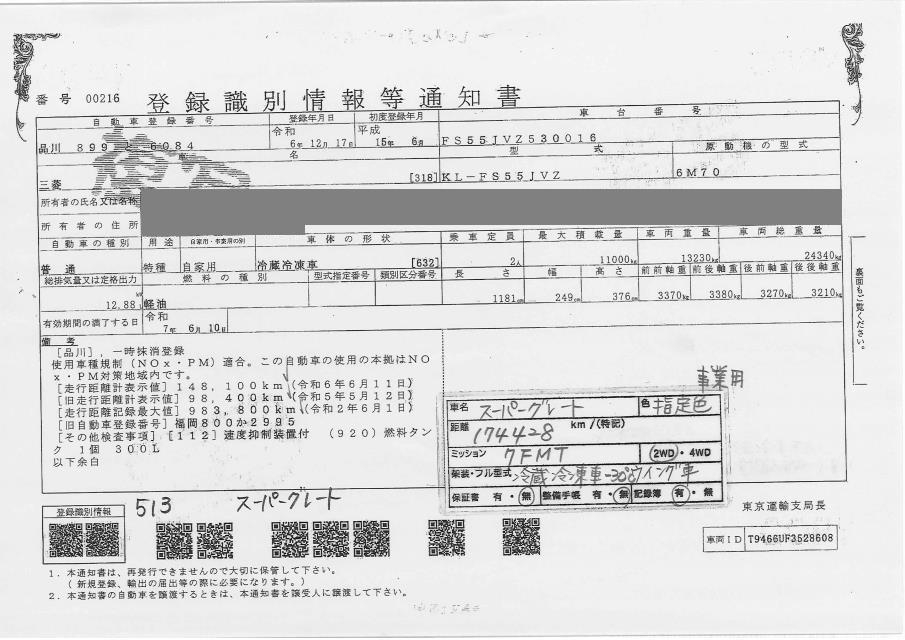 番号 00216 登録識別情報等通知書
自動車登録番号 登録年月日 初度登録年月 車台番号
品川 899 6084 令和 6年 12月 17日 平成 15年 6月 FS55JVZ530016
車名 型式 原動機の型式
三菱 [318] KL-FS55JVZ 6M70
所有者の氏名又は名称
所有者の住所
自動車の種別 用途 自家用・事業用の別 車体の形状 乗車定員 最大積載量 車両重量 車両総重量
普通 特種 自家用 冷蔵冷凍車 [632] 2人 11000kg 13230kg 24340kg
総排気量又は定格出力 燃料の種別 型式指定番号 類別区分番号 長さ 幅 高さ 前前軸重 前後軸重 後前軸重 後後軸重
12.88 軽油 1181cm 249cm 376cm 3370kg 3380kg 3270kg 3210kg
有効期間の満了する日 令和 7年 6月 10日
裏面もご覧ください。
備考
[品川],一時抹消登録
使用車種規制(NOx・PM)適合。この自動車の使用の本拠はNO
x・PM対策地域内です。
[走行距離計表示値]148,100km(令和6年6月11日)
[旧走行距離計表示値]98,400km(令和5年5月12日)
[走行距離記録最大値]983,800km(令和2年6月1日)
[旧自動車登録番号]福岡800か2995
[その他検査事項][112]速度抑制装置付 (920)燃料タン
ク 1個 300L
以下余白
事業用
車名 スーパーグレート 色 指定色
距離 174428 km/(特記)
ミッション 7FMT 2WD・4WD
架装・フル型式 冷蔵冷凍車-30°ウイング車
保証書 有・無 整備手帳 有・無 記録簿 有・無
513 スーパーグレート
東京運輸支局長
登録識別情報
車両ID T9466UF3528608
1.本通知書は、再発行できませんので大切に保管して下さい。
(新規登録、輸出の届出等の際に必要になります。)
2.本通知書の自動車を譲渡するときは、本通知書を譲受人に譲渡して下さい。